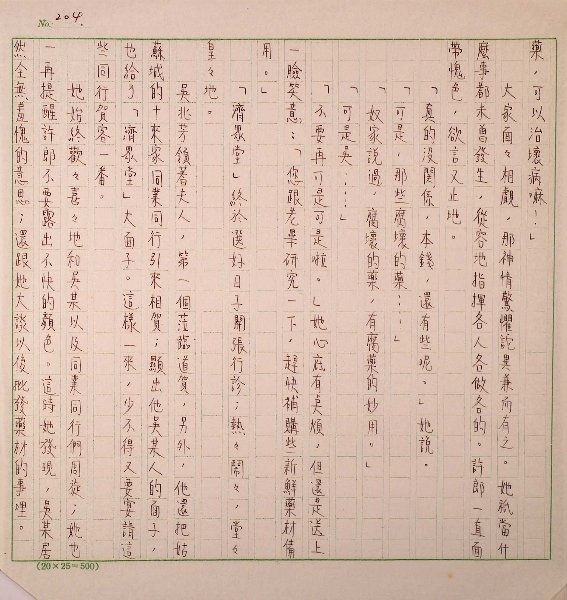 No. 204.
藥，可以治壞病嘛！」
大家面々相覷，那神情驚懼詫異兼而有之。她祇當什
麼事都未曾發生，從容地指揮各人各做各的。許郎一直面
帶愧色，欲言又止地。
「真的沒関係，本錢，還有些呢。」她說。
「可是，那些腐壞的藥⋯⋯」
「奴家說過，腐壞的藥，有腐藥的妙用。」
「可是吳⋯⋯」
「不要再可是可是啦。」她心底有臭煩，但還是送上
一臉笑意：「您跟老畢研究一下，趕快補購些新鮮藥材備
用。」
「濟眾堂」終於選好日子開張行診；熱々鬧々，堂々
皇々地。
吳北芳領著夫人，第一個蒞臨道賀，另外，他還把姑
蘇城的十來家同業同行引來相賀；顯出他吳某人的面子，
也給了「濟眾堂」大面子。這樣一來，少不得又要宴請這
些同行賀客一番。
她始終歡々喜々地和吳某以及同業同行們周旋；她也
一再提醒許郎不要露出不快的顏色。這時她發現，吳某居
然全無羞愧的意思；還跟她大談以後批發藥材的事哩。
(20×25=500)